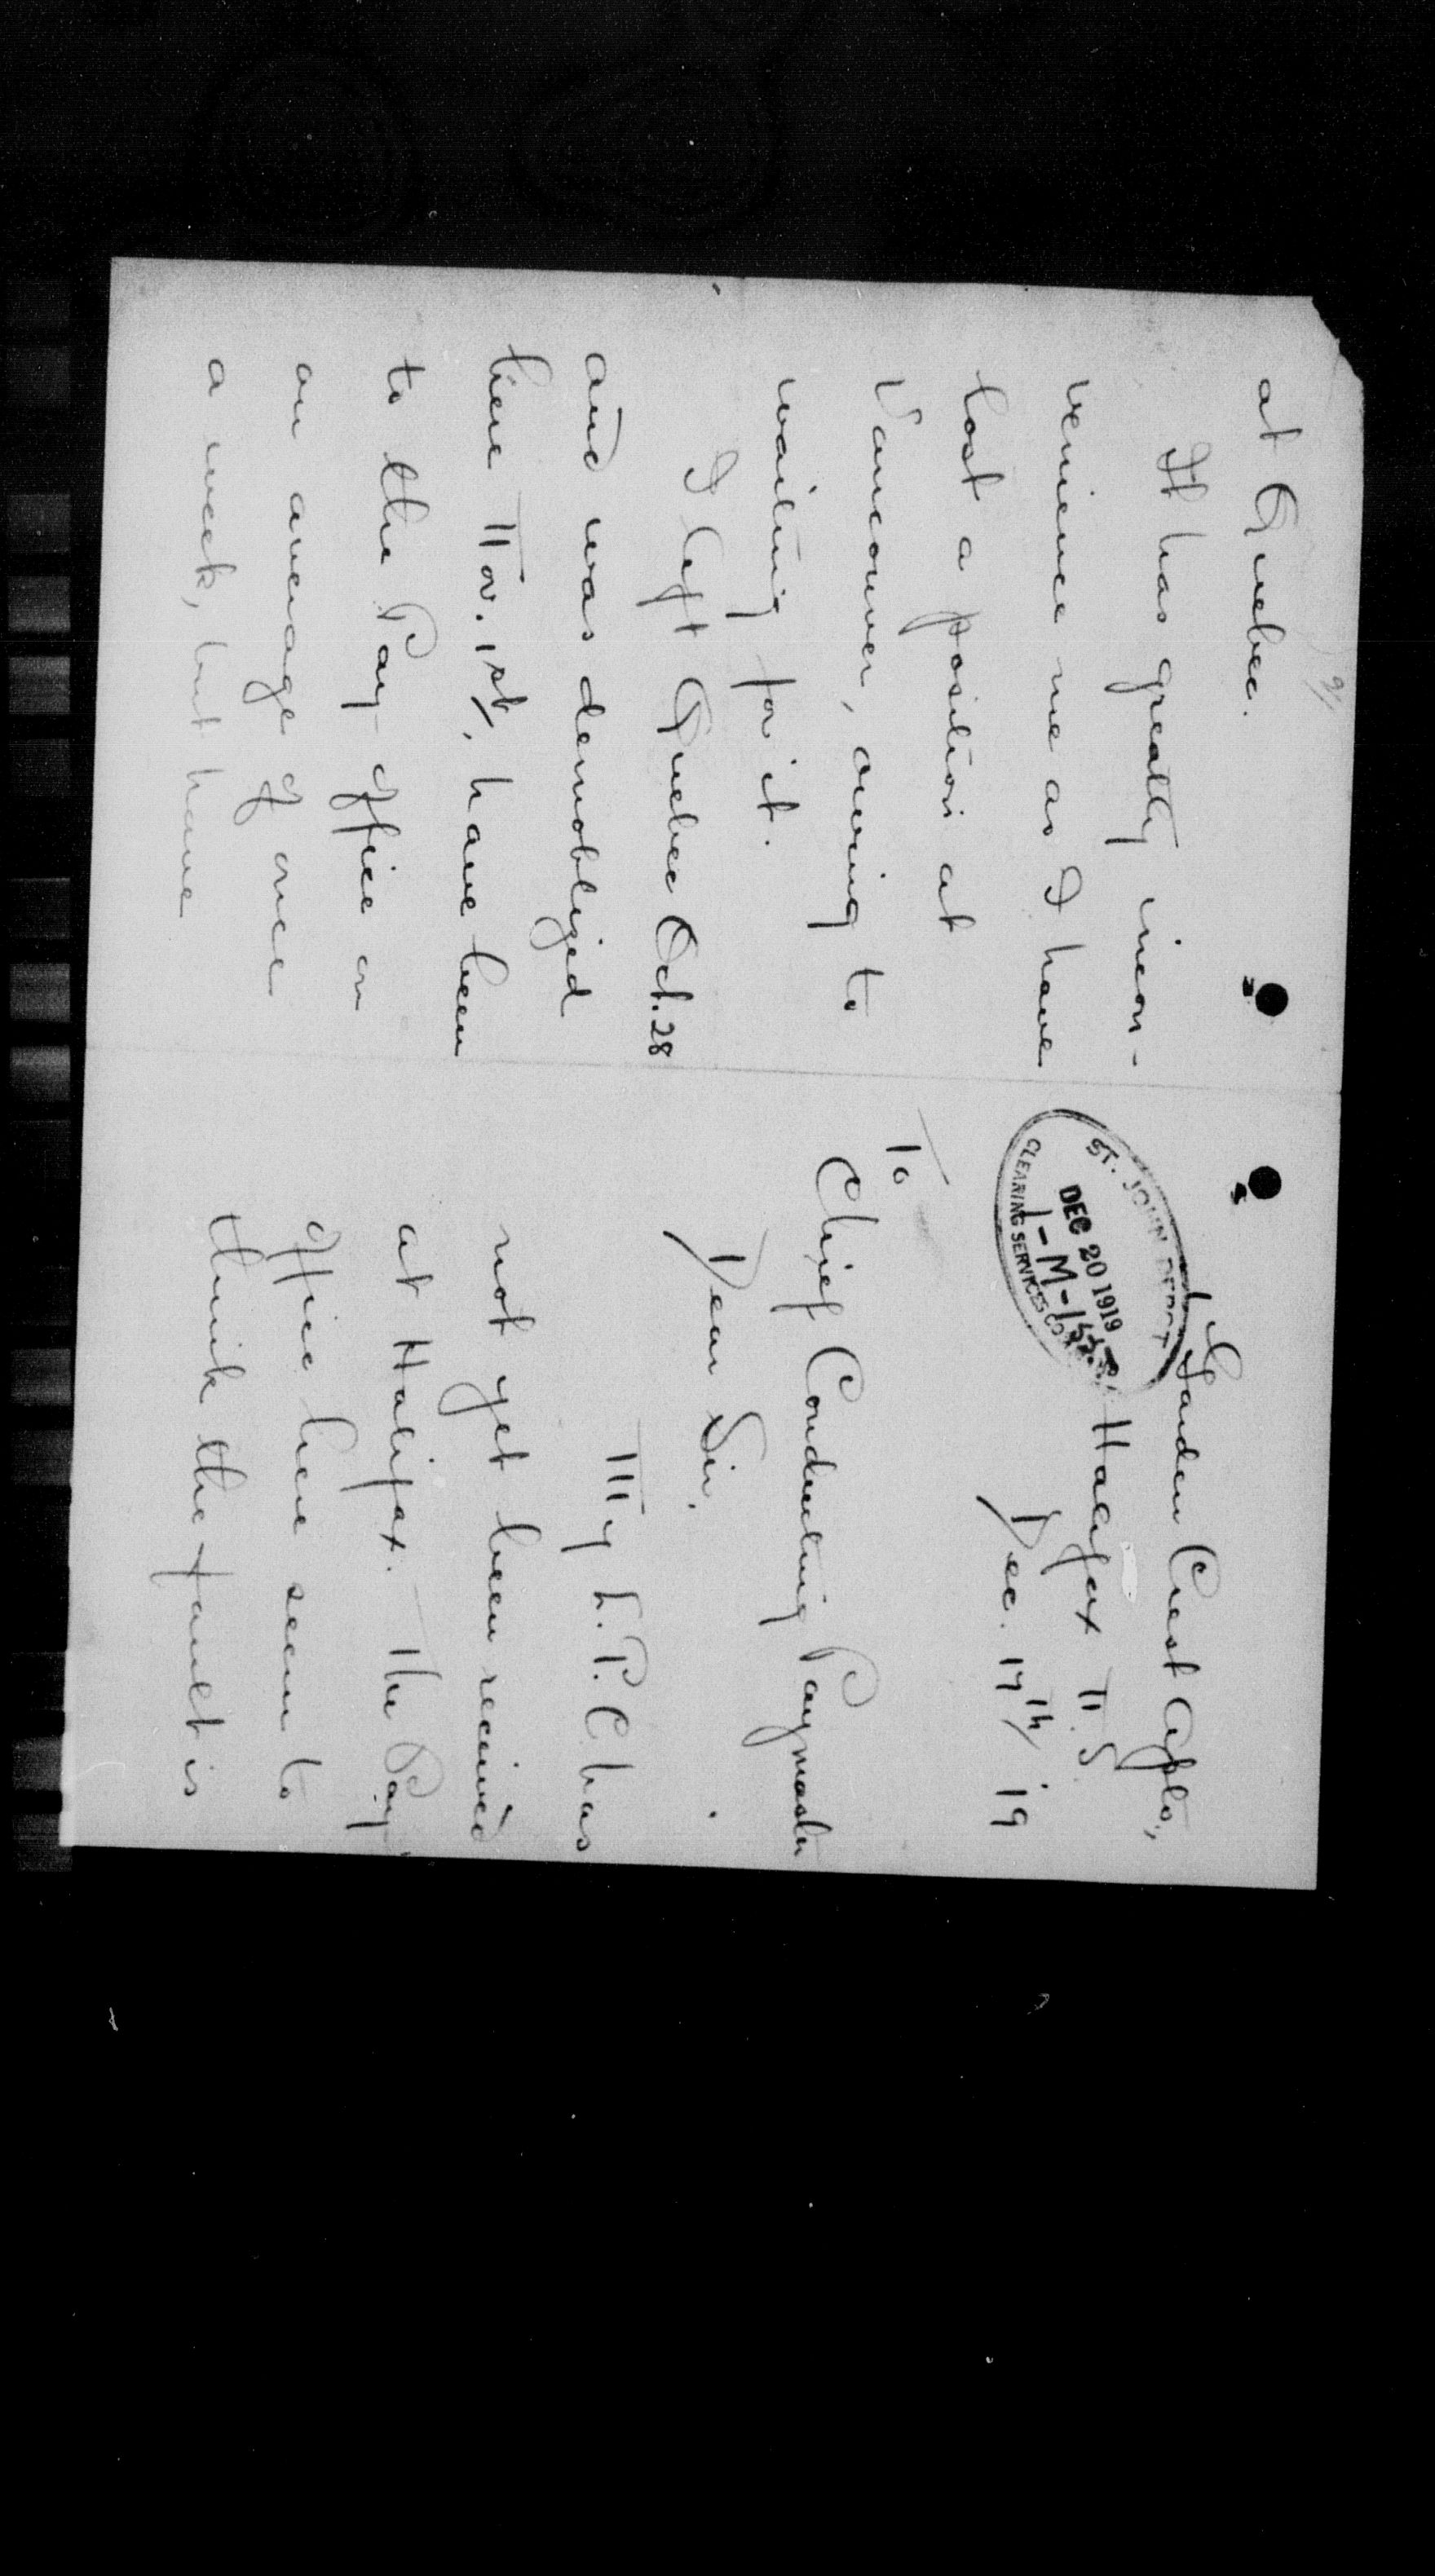 Garden Crest Apts.,
Halifax N.S
Dec. 17th/ '19
ST. JOHN DEPOT
DEC 20 1919
1-M-155
CLEARING SERVICES CO
To
Chief Conducting Paymaster
Dear Sir,
My L.P.C has
not yet been received
at Halifax. The Pay
office here seem to
think the fault is
2/
at Quebec.
It has greatly incon-
venience me as I have
lost a position at
Vancouver, owing to
waiting for it.
I left Quebec Oct. 28
and was demoblized
here Nov. 1st/, have been
to the Pay office on
an average of once
a week, but have